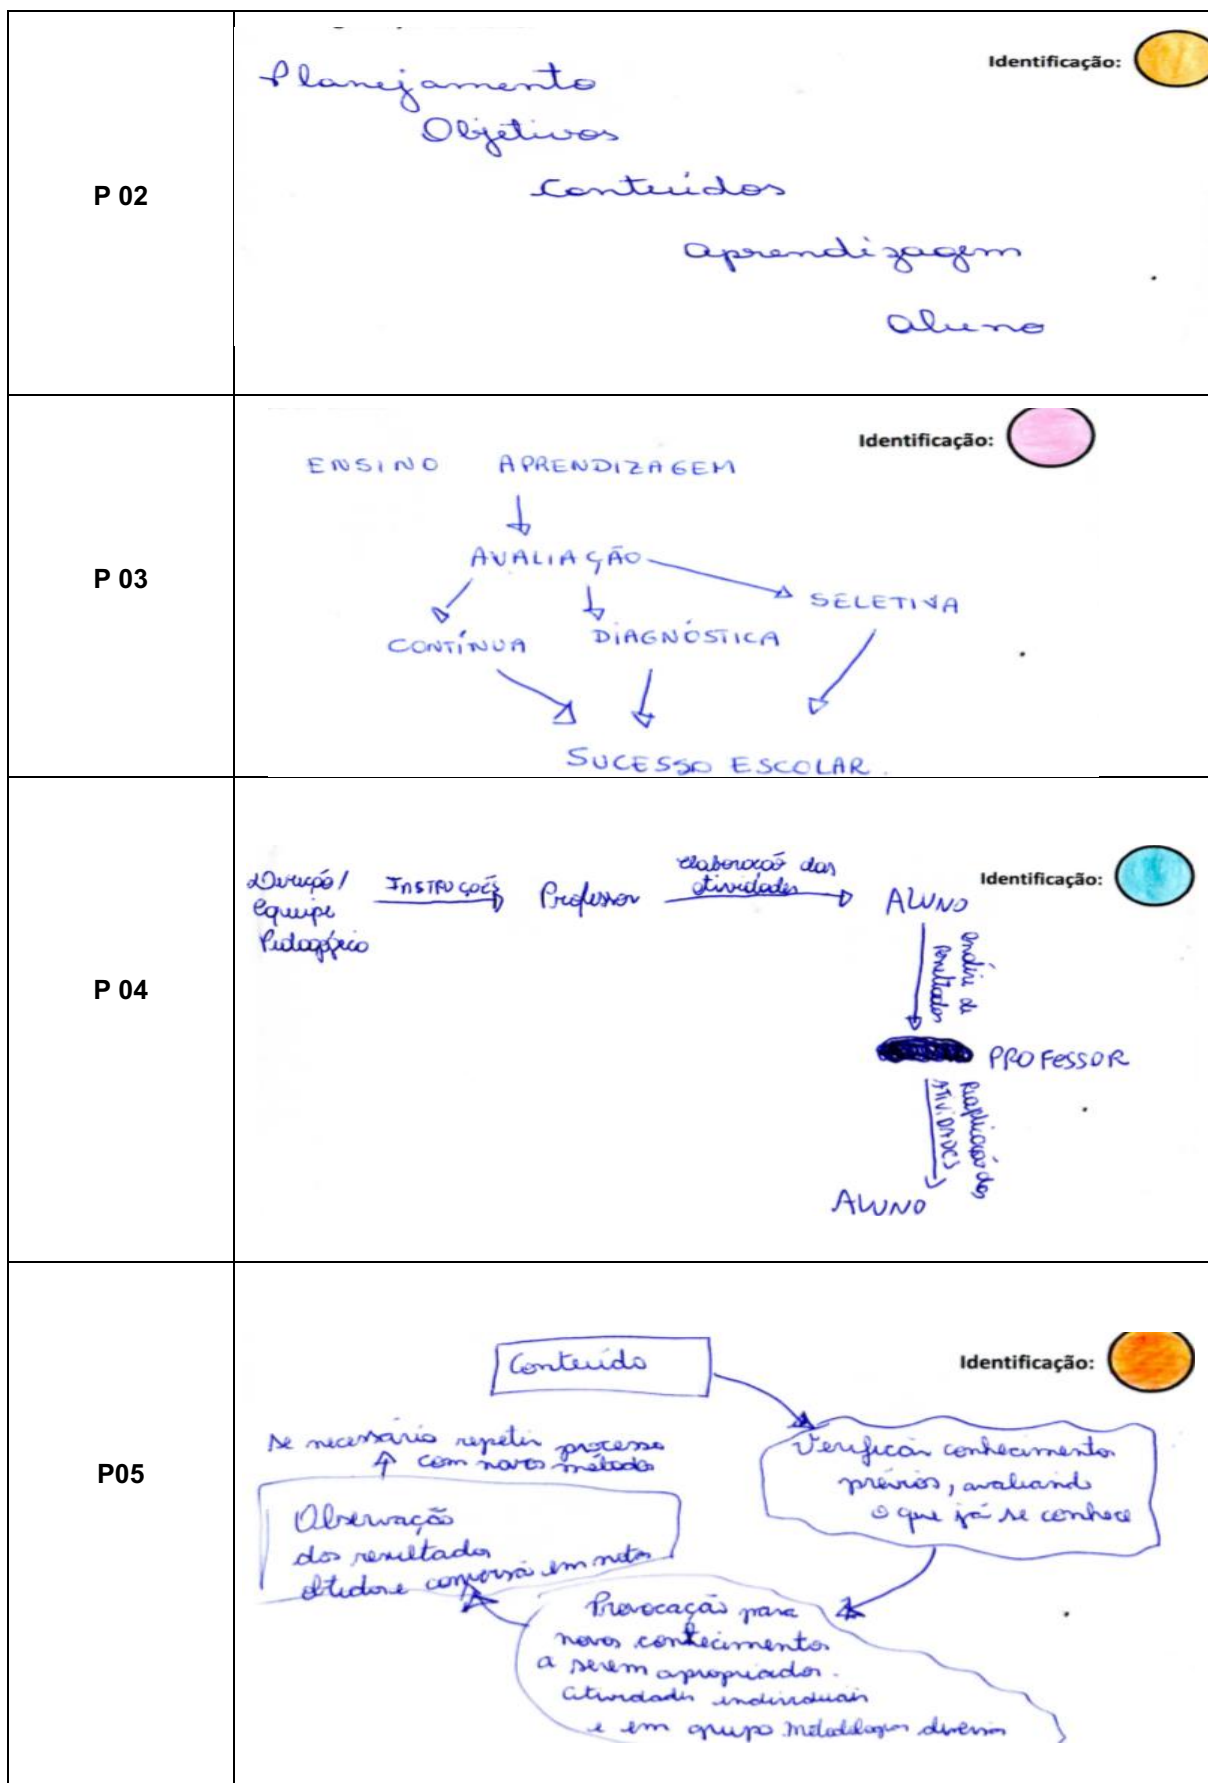 P 02
Identificação:
Planejamento
Objetivos
Conteúdos
aprendizagem
aluno
P 03
Identificação:
ENSINO APRENDIZAGEM
AVALIAÇÃO
SELETIVA
CONTÍNUA DIAGNÓSTICA
SUCESSO ESCOLAR.
P 04
Identificação:
Direção/
Equipe
Pedagógica
INSTRUÇÕES
Professor
elaboração das
atividades
ALUNO
análise de
resultados
PROFESSOR
Reaplicação das
ATIVIDADES
ALUNO
P05
Identificação:
Conteúdo
Verificar conhecimentos
prévios, avaliando
o que já se conhece
Provocação para
novos conhecimentos
a serem apropriados.
atividades individuais
e em grupo metodologias diversas
Observação
dos resultados
obtidos e conversa em notas
se necessário repetir processo
com novos métodos